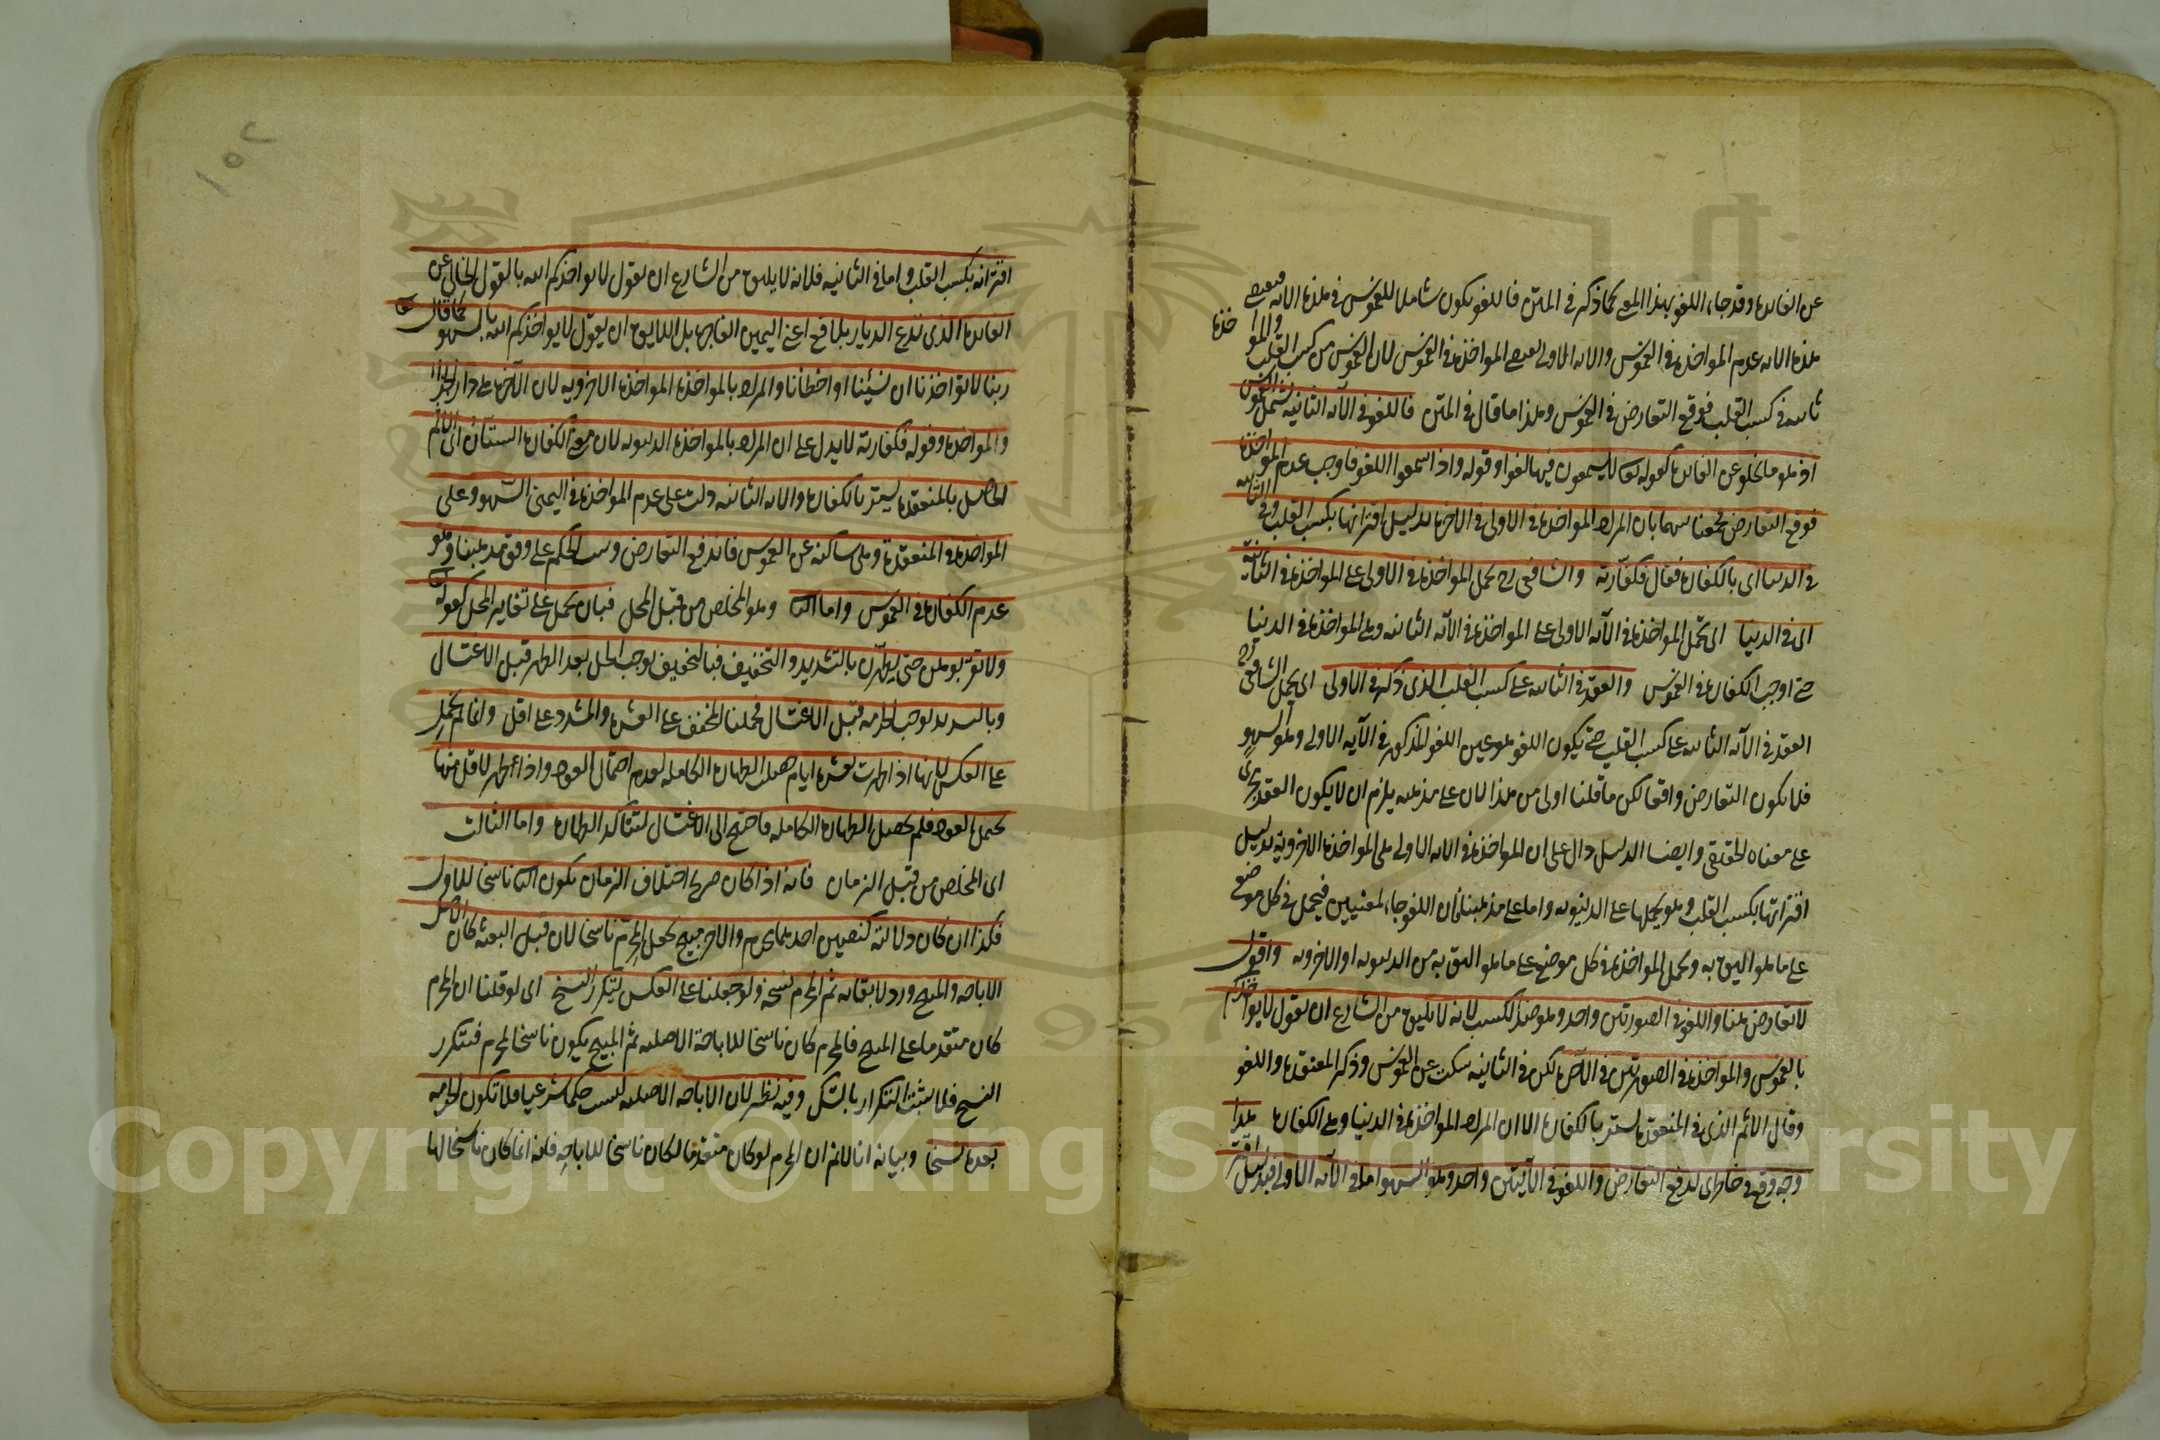 عن الفائدة وقد جاء اللغو بهذا المعنى كما ذكر في المتن فاللغو يكون شاملا للغموس في هذه الآية فمعنى
هذه الآية عدم المواخذة في الغموس والآية الاولى تقتضى المواخذة في الغموس لان الغموس من كسب القلب والمواخذة
ثابتة في كسب القلب فوقع التعارض في الغموس وهذا ما قال في المتن فاللغو في الآية الثانية يشمل الغموس
اذ هو ما يخلو عن الفائدة كقوله تعالى لا يسمعون فيها لغوا وقوله واذا سمعوا اللغو فاوجب عدم المواخذة
فوقع التعارض فجمعنا بينهما بان المراد المواخذة في الاولى في الآخرة بدليل اقترانها بكسب القلب وفي الثانية
في الدنيا اى بالكفارة فقال فكفارته والشافعي رح يحمل المواخذة في الاولى على المواخذة في الثانية
اى في الدنيا اى يحمل المواخذة في الآية الاولى على المواخذة في الآية الثانية وهى المواخذة في الدنيا
حتى اوجب الكفارة في الغموس والعقد في الثانية على كسب القلب الذى ذكر في الاولى اى يحمل الشافعي رح
العقد في الآية الثانية على كسب القلب حتى يكون اللغو هو عين اللغو المذكور في الآية الاولى وهو السهو
فلا يكون التعارض واقعا لكن ما قلنا اولى من هذا لان على مذهبه يلزم ان لا يكون العقد مجرى
على معناه الحقيقي وايضا الدليل دال على ان المواخذة في الآية الاولى هى المواخذة الاخروية بدليل
اقترانها بكسب القلب وهو يحملها على الدنيوية واما على مذهبنا فان اللغو جاء لمعنيين فيحمل في كل موضع
على ما هو اليق به ويحمل المواخذة في كل موضع على ما هو اليق به من الدنيوية او الاخروية واقول
لا تعارض هنا واللغو في الصورتين واحد وهو ضد الكسب لانه لا يليق من الشارع ان يقول لا يواخذكم
بالغموس والمواخذة في الصورتين في الآخرة لكن في الثانية سكت عن الغموس وذكر المنعقدة واللغو
وقال الاثم الذى في المنعقدة يستر بالكفارة لا ان المراد المواخذة في الدنيا وهى الكفارة هذا
وجه وقع في خاطرى لدفع التعارض واللغو في الآيتين واحد وهو السهو اما في الآية الاولى فبدليل
اقترانه بكسب القلب واما في الثانية فلانه لا يليق من الشارع ان يقول لا يواخذكم الله بالقول الخالى عن
الفائدة الذى يدع الديار بلاقع اعنى اليمين الفاجرة بل اللايق ان يقول لا يواخذكم الله بالسهو كما قال تعالى
ربنا لا تواخذنا ان نسينا او اخطأنا والمراد بالمواخذة المواخذة الاخروية لان الآخرة هى دار الجزاء
والمواخذة وقوله فكفارته لا يدل على ان المراد بالمواخذة الدنيوية لان معنى الكفارة الستارة اى الاثم
الحاصل بالمنعقدة يستر بالكفارة والآية الثانية دلت على عدم المواخذة في اليمين السهو وعلى
المواخذة في المنعقدة وهى ساكتة عن الغموس فاندفع التعارض وثبت الحكم على وفق مذهبنا وهو
عدم الكفارة في الغموس واما الثانى وهو المخلص من قبل المحل فبان يحمل على تغاير المحل كقوله تعالى
ولا تقربوهن حتى يطهرن بالتشديد والتخفيف فبالتخفيف يوجب الحل بعد الطهر قبل الاغتسال
وبالتشديد يوجب الحرمة قبل الاغتسال فحملنا المخفف على العشرة والمشدد على اقل وانما لم يحمل
على العكس لانها اذا طهرت بعشرة ايام حصلت الطهارة الكاملة لعدم احتمال العود واذا طهر لاقل منها
يحتمل العود فلم يحصل الطهارة الكاملة فاحتيج الى الاغتسال لتتأكد الطهارة واما الثالث
اى المخلص من قبل الزمان فانه اذا كان صريح اختلاف الزمان يكون الثانى ناسخا للاول
فكذا ان كان دلالة كنصين احدهما محرم والاخر مبيح يجعل المحرم ناسخا لان قبل البعثة كان الاصل
الاباحة والمبيح ورد لابقائه ثم المحرم نسخه ولو جعلنا على العكس يتكرر النسخ اى لو قلنا ان المحرم
كان متقدما على المبيح فالمحرم كان ناسخا للاباحة الاصلية ثم المبيح يكون ناسخا للمحرم فيتكرر
النسخ فلا يثبت التكرار بالشك وفيه نظر لان الاباحة الاصلية ليست حكما شرعيا فلا تكون الحرمة
بعده نسخا وبيانه انا لا نم ان المحرم لو كان متقدما لكان ناسخا للاباحة فانه انما كان ناسخا لها
١٠٢
Copyright © King Saud University
1957